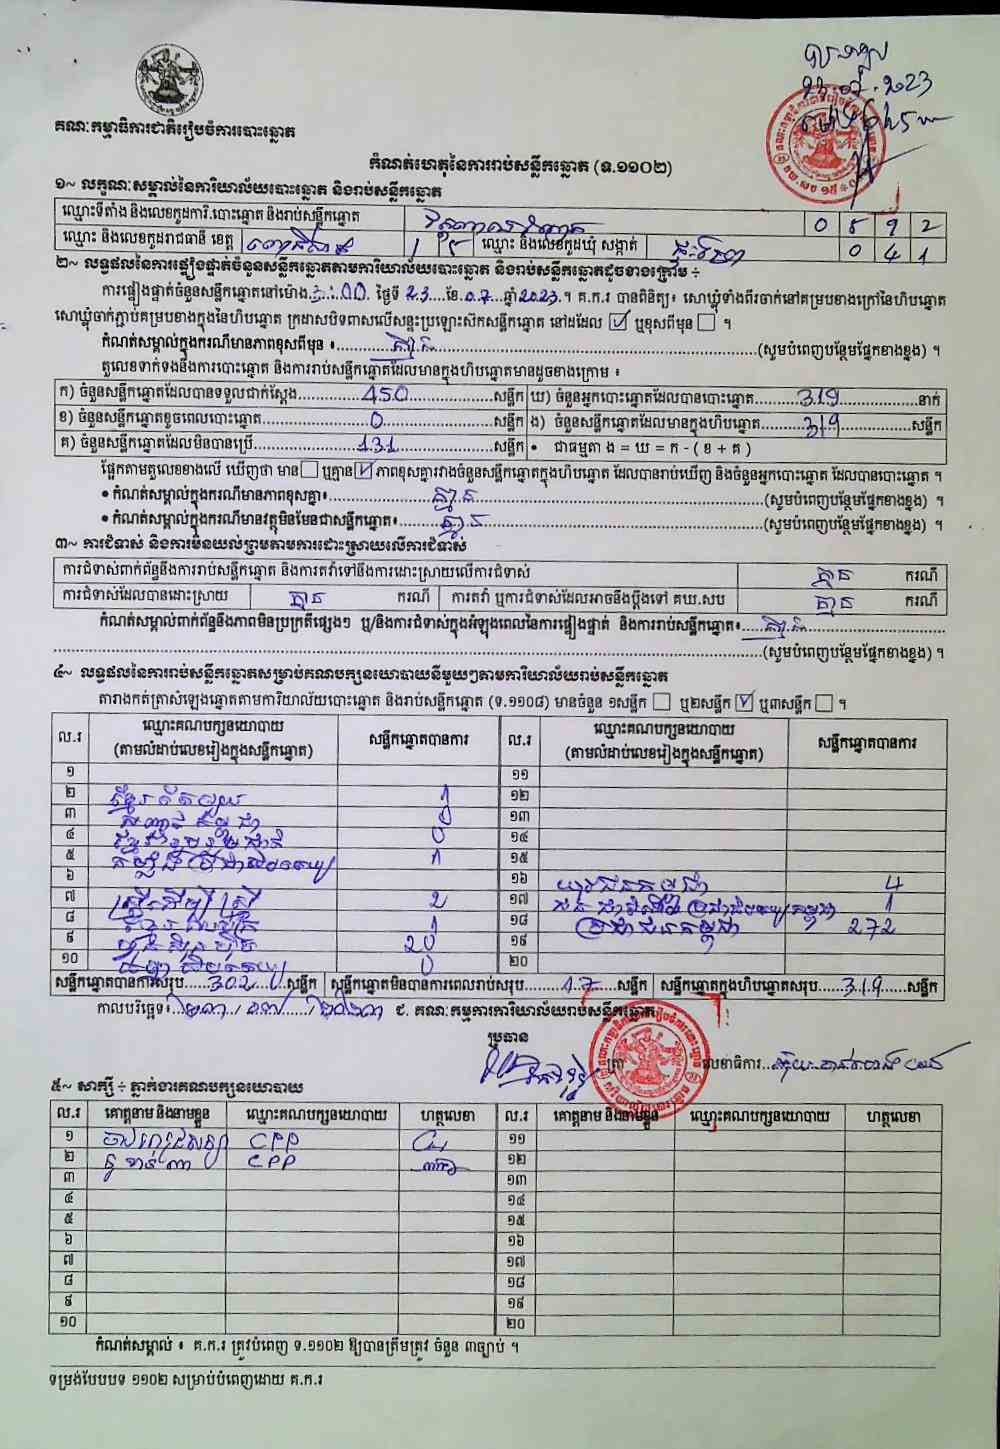 គណៈកម្មាធិការជាតិរៀបចំការបោះឆ្នោត
23.07.2023
កំណត់ហេតុនៃការរាប់សន្លឹកឆ្នោត (ទ.១១០២)
១~ លក្ខណៈសម្គាល់នៃការិយាល័យបោះឆ្នោត និងរាប់សន្លឹកឆ្នោត
ឈ្មោះទីតាំង និងលេខកូដការិ.បោះឆ្នោត និងរាប់សន្លឹកឆ្នោត 0 8 9 2
ឈ្មោះ និងលេខកូដរាជធានី ខេត្ត ពោធិ៍សាត់ 1 5 ឈ្មោះ និងលេខកូដឃុំ សង្កាត់ 0 4 1
២~ លទ្ធផលនៃការផ្ទៀងផ្ទាត់ចំនួនសន្លឹកឆ្នោតតាមការិយាល័យបោះឆ្នោត និងរាប់សន្លឹកឆ្នោតដូចខាងក្រោម ÷
ការផ្ទៀងផ្ទាត់ចំនួនសន្លឹកឆ្នោតនៅម៉ោង 3:00 ថ្ងៃទី 23 ខែ 07 ឆ្នាំ 2023 ។ គ.ក.រ បានពិនិត្យ៖ សោឃ្លុំទាំងពីរចាក់នៅគម្របខាងក្រៅនៃហិបឆ្នោត
សោឃ្លុំចាក់ភ្ជាប់គម្របខាងក្នុងនៃហិបឆ្នោត ក្រដាសបិទពាសលើសន្ទះប្រឡោះស៊កសន្លឹកឆ្នោត នៅដដែល ☑ ឬខុសពីមុន ☐ ។
កំណត់សម្គាល់ក្នុងករណីមានភាពខុសពីមុន ៖ គ្មាន (សូមបំពេញបន្ថែមផ្នែកខាងខ្នង) ។
តួលេខទាក់ទងនឹងការបោះឆ្នោត និងការរាប់សន្លឹកឆ្នោតដែលមានក្នុងហិបឆ្នោតមានដូចខាងក្រោម ៖
ក) ចំនួនសន្លឹកឆ្នោតដែលបានទទួលជាក់ស្តែង 450 សន្លឹក ឃ) ចំនួនអ្នកបោះឆ្នោតដែលបានបោះឆ្នោត 319 នាក់
ខ) ចំនួនសន្លឹកឆ្នោតខូចពេលបោះឆ្នោត 0 សន្លឹក ង) ចំនួនសន្លឹកឆ្នោតដែលមានក្នុងហិបឆ្នោត 319 សន្លឹក
គ) ចំនួនសន្លឹកឆ្នោតដែលមិនបានប្រើ 131 សន្លឹក • ជាធម្មតា ង = ឃ = ក - ( ខ + គ )
ផ្អែកតាមតួលេខខាងលើ ឃើញថា មាន ☐ ឬគ្មាន ☑ ភាពខុសគ្នារវាងចំនួនសន្លឹកឆ្នោតក្នុងហិបឆ្នោត ដែលបានរាប់ឃើញ និងចំនួនអ្នកបោះឆ្នោត ដែលបានបោះឆ្នោត ។
• កំណត់សម្គាល់ក្នុងករណីមានភាពខុសគ្នា៖ គ្មាន (សូមបំពេញបន្ថែមផ្នែកខាងខ្នង) ។
• កំណត់សម្គាល់ក្នុងករណីមានវត្ថុមិនមែនជាសន្លឹកឆ្នោត៖ គ្មាន (សូមបំពេញបន្ថែមផ្នែកខាងខ្នង) ។
៣~ ការជំទាស់ និងការមិនយល់ព្រមតាមការដោះស្រាយលើការជំទាស់
ការជំទាស់ពាក់ព័ន្ធនឹងការរាប់សន្លឹកឆ្នោត និងការតវ៉ាទៅនឹងការដោះស្រាយលើការជំទាស់ គ្មាន ករណី
ការជំទាស់ដែលបានដោះស្រាយ គ្មាន ករណី ការតវ៉ា ឬការជំទាស់ដែលអាចនឹងប្តឹងទៅ គឃ.សប គ្មាន ករណី
កំណត់សម្គាល់ពាក់ព័ន្ធនឹងភាពមិនប្រក្រតីផ្សេងៗ ឬ/និងការជំទាស់ក្នុងអំឡុងពេលនៃការផ្ទៀងផ្ទាត់ និងការរាប់សន្លឹកឆ្នោត៖ គ្មាន
(សូមបំពេញបន្ថែមផ្នែកខាងខ្នង) ។
៤~ លទ្ធផលនៃការរាប់សន្លឹកឆ្នោតសម្រាប់គណបក្សនយោបាយនីមួយៗតាមការិយាល័យរាប់សន្លឹកឆ្នោត
តារាងកត់ត្រាសំឡេងឆ្នោតតាមការិយាល័យបោះឆ្នោត និងរាប់សន្លឹកឆ្នោត (ទ.១១០៨) មានចំនួន ១សន្លឹក ☐ ឬ២សន្លឹក ☑ ឬ៣សន្លឹក ☐ ។
ល.រ ឈ្មោះគណបក្សនយោបាយ (តាមលំដាប់លេខរៀងក្នុងសន្លឹកឆ្នោត) សន្លឹកឆ្នោតបានការ ល.រ ឈ្មោះគណបក្សនយោបាយ (តាមលំដាប់លេខរៀងក្នុងសន្លឹកឆ្នោត) សន្លឹកឆ្នោតបានការ
១ ១១
២ ១២
៣ ១៣
៤ ១៤
៥ ១៥
៦ ១៦ យុវជនកម្ពុជា 4
៧ ស្ត្រីដើម្បីស្ត្រី 2 ១៧ 1
៨ ១៨ ប្រជាជនកម្ពុជា 272
៩ ហ្វ៊ុនស៊ិនប៉ិច 20 ១៩
១០ ២០
សន្លឹកឆ្នោតបានការសរុប 302 សន្លឹក សន្លឹកឆ្នោតមិនបានការពេលរាប់សរុប 17 សន្លឹក សន្លឹកឆ្នោតក្នុងហិបឆ្នោតសរុប 319 សន្លឹក
កាលបរិច្ឆេទ៖ ២៣/០៧/២០២៣ ជ. គណៈកម្មការការិយាល័យរាប់សន្លឹកឆ្នោត
ប្រធាន
ត្រា លេខាធិការ
៥~ សាក្សី ÷ ភ្នាក់ងារគណបក្សនយោបាយ
ល.រ គោត្តនាម និងនាមខ្លួន ឈ្មោះគណបក្សនយោបាយ ហត្ថលេខា ល.រ គោត្តនាម និងនាមខ្លួន ឈ្មោះគណបក្សនយោបាយ ហត្ថលេខា
១ CPP ១១
២ CPP ១២
៣ ១៣
៤ ១៤
៥ ១៥
៦ ១៦
៧ ១៧
៨ ១៨
៩ ១៩
១០ ២០
កំណត់សម្គាល់ ៖ គ.ក.រ ត្រូវបំពេញ ទ.១១០២ ឱ្យបានត្រឹមត្រូវ ចំនួន ៣ច្បាប់ ។
ទម្រង់បែបបទ ១១០២ សម្រាប់បំពេញដោយ គ.ក.រ